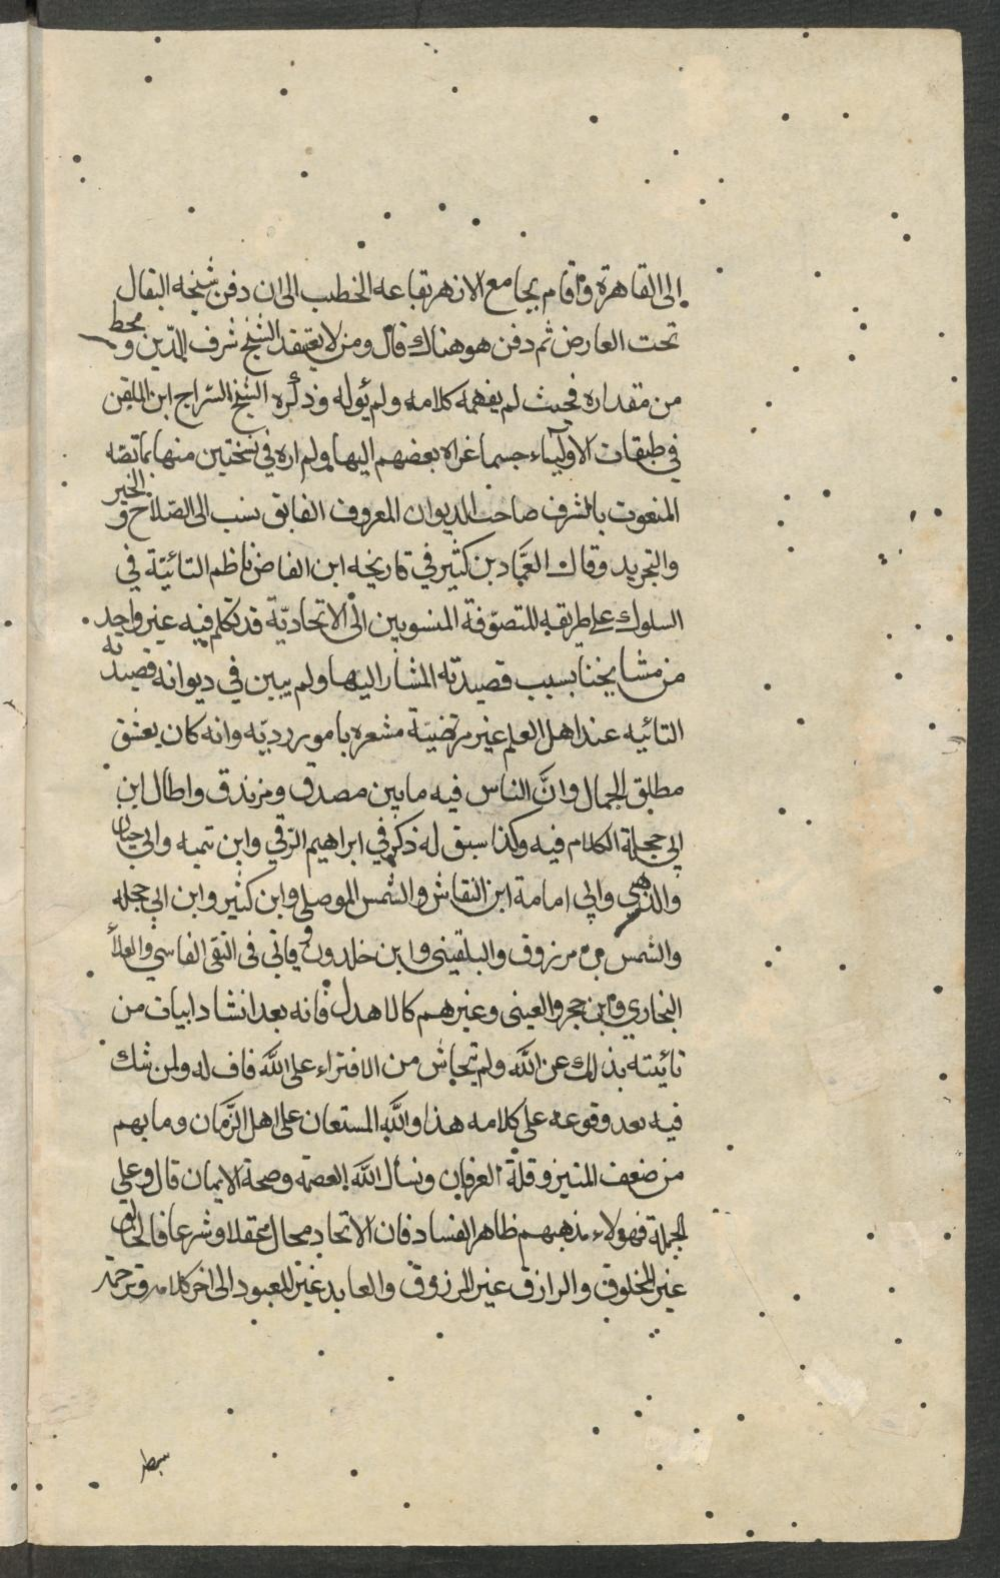 إلى القاهرة واقام بجامع الازهر بقاعه الخطب الى ان دفن شيخه البقال
تحت العارض ثم دفن هو هناك قال ومن لا يعتقد الشيخ شرف الدين ومحط
من مقداره فحيث لم يفهم كلامه ولم يئوله وذكره الشيخ السراج ابن الملقن
في طبقات الاولياء جسما غراه بعضهم اليها ولم اره في نسختين منها بما نصه
المنعوت بالشرف صاحب الديوان المعروف الفايق نسب الى الصلاح والخير
والتجريد وقال العماد بن كثير في تاريخه ابن الفاض ناظم التائية في
السلوك على طريقه المتصوفة المنسوبين الى الاتحادية قد تكلم فيه غير واحد
من مشايخنا بسبب قصيدته المشار اليها ولم يبين في ديوانه قصيدته
التائيه عند اهل العلم غير مرضية مشعره بامور رديه وانه كان يعشق
مطلق الجمال وان الناس فيه مابين مصدق ومزندق واطال ابن
ابي حجلة الكلام فيه وكذا سبق له ذكر في ابراهيم الرقي وابن تيميه وابي حيان
والذهبي وابي امامة ابن النقاش والشمس الموصلي وابن كثير وابن ابي حجله
والشمس بن مرزوق والبلقيني وابن خلدون وياتي في التقى الفاسي والعلأ
البخاري وابن حجر والعينى وغيرهم كالاهدل فانه بعد انشاد ابيات من
تائيته بذلك عن الله ولم يتحاش من الافتراء على الله فاف له ولمن شك
فيه بعد وقوعه على كلامه هذا والله المستعان على اهل الزمان وما بهم
من ضعف التميز وقلة العرفان ونسأل الله العصمة وصحة الايمان قال وعلى
الجملة فهولاء مذهبهم ظاهر الفساد فان الاتحاد محال عقلا وشرعا فالخالق
غير المخلوق والرازق غير المرزوق والعابد غير المعبود الى اخر كلامه وترجمه
سبط